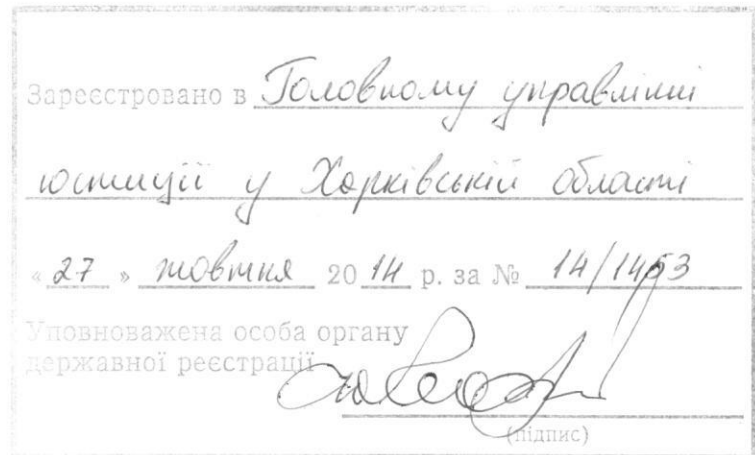 Зареєстровано в Головному управлінні
юстиції у Харківській області
«27» жовтня 2014 р. за № 14/1453
Уповноважена особа органу
державної реєстрації
(підпис)